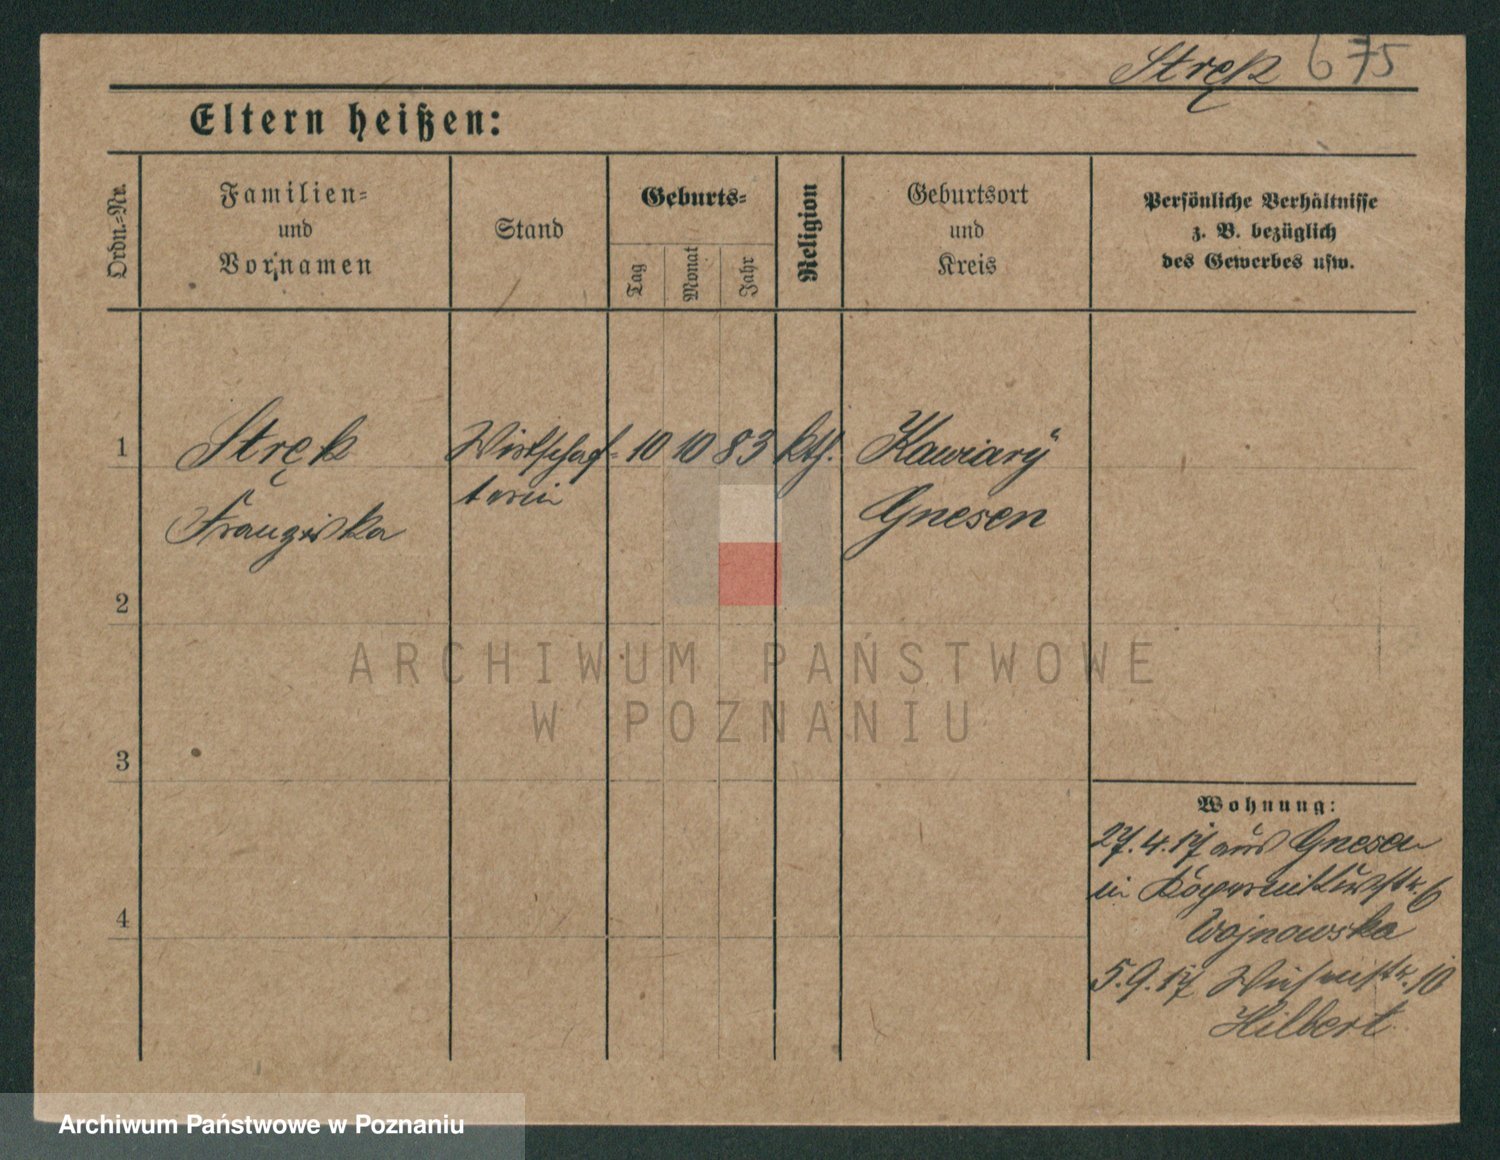 Stręk 675
Eltern heißen:
Ordn.=Nr.
Familien=
und
Vornamen
Stand
Geburts=
Tag
Monat
Jahr
Religion
Geburtsort
und
Kreis
Persönliche Verhältnisse
z. B. bezüglich
des Gewerbes usw.
1
Stręk
Franziska
Wirtschaf-
terin
10 10 83
kth.
Kawiary
Gnesen
2
3
4
Wohnung:
27.4.17 aus Gnesen
in Kopernikusstr. 6
Wojnowska
5.9.17 10
Hilbert
ARCHIWUM PAŃSTWOWE
W POZNANIU
Archiwum Państwowe w Poznaniu